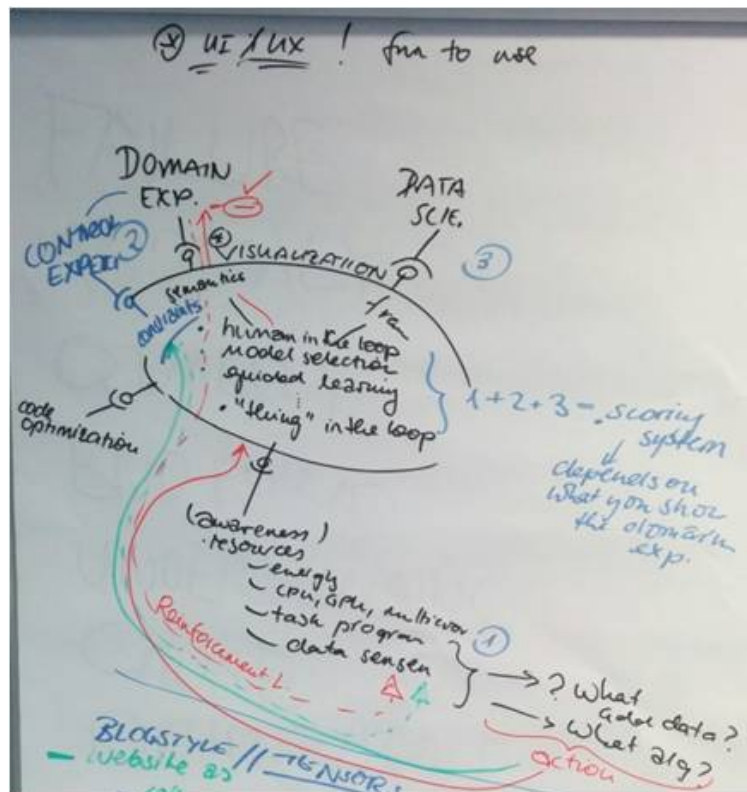 * UI / UX ! fun to use
DOMAIN
EXP.
DATA
SCIE.
CONTROL
EXPERT 2
* VISUALIZATION
3
semantics
constraints
human in the loop
model selection
guided learning
"thing" in the loop
1+2+3 = scoring
system
depends on
what you show
the domain
exp.
code
optimization
(awareness)
resources
energy
cpu, GPU, multicore
task program
data sensen
1
Reinforcement L
? What
add data?
What alg?
action
BLOGSTYLE // TENSOR
website as